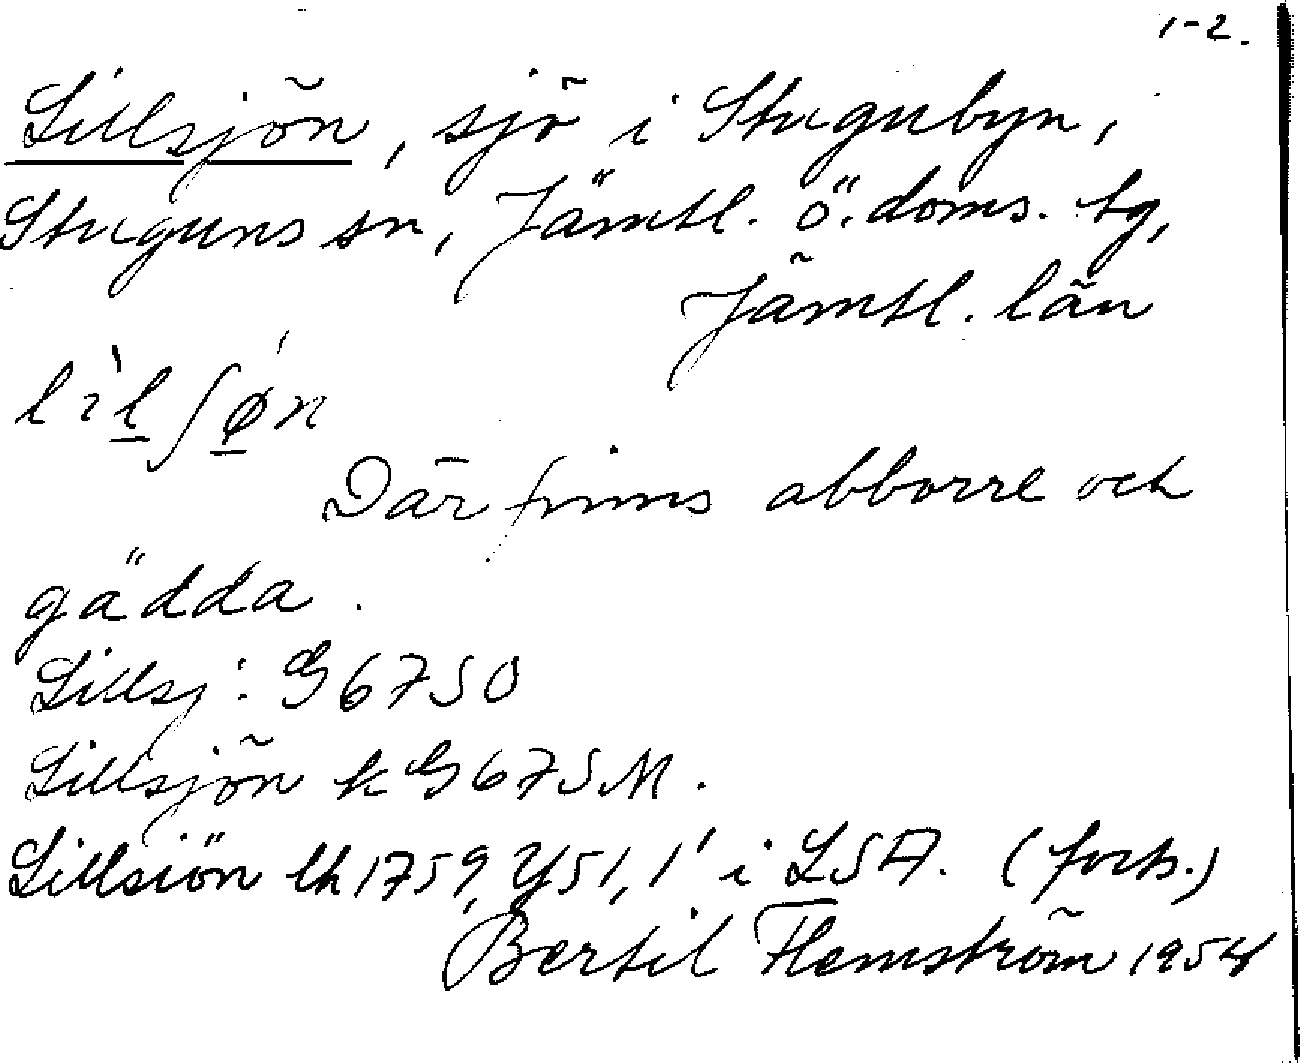 1-2.
Lillsjön, sjö i Stugubyn,
Stuguns sn, Jämtl. ö. doms. tg,
Jämtl. län
lìlʃǿn
Där finns abborre och
gädda.
Lillsj: G6750
Lillsjön k G675M.
Lillsiön lh 1759, Y51, 1' i LSA. (forts.)
Bertil Flemström 1954